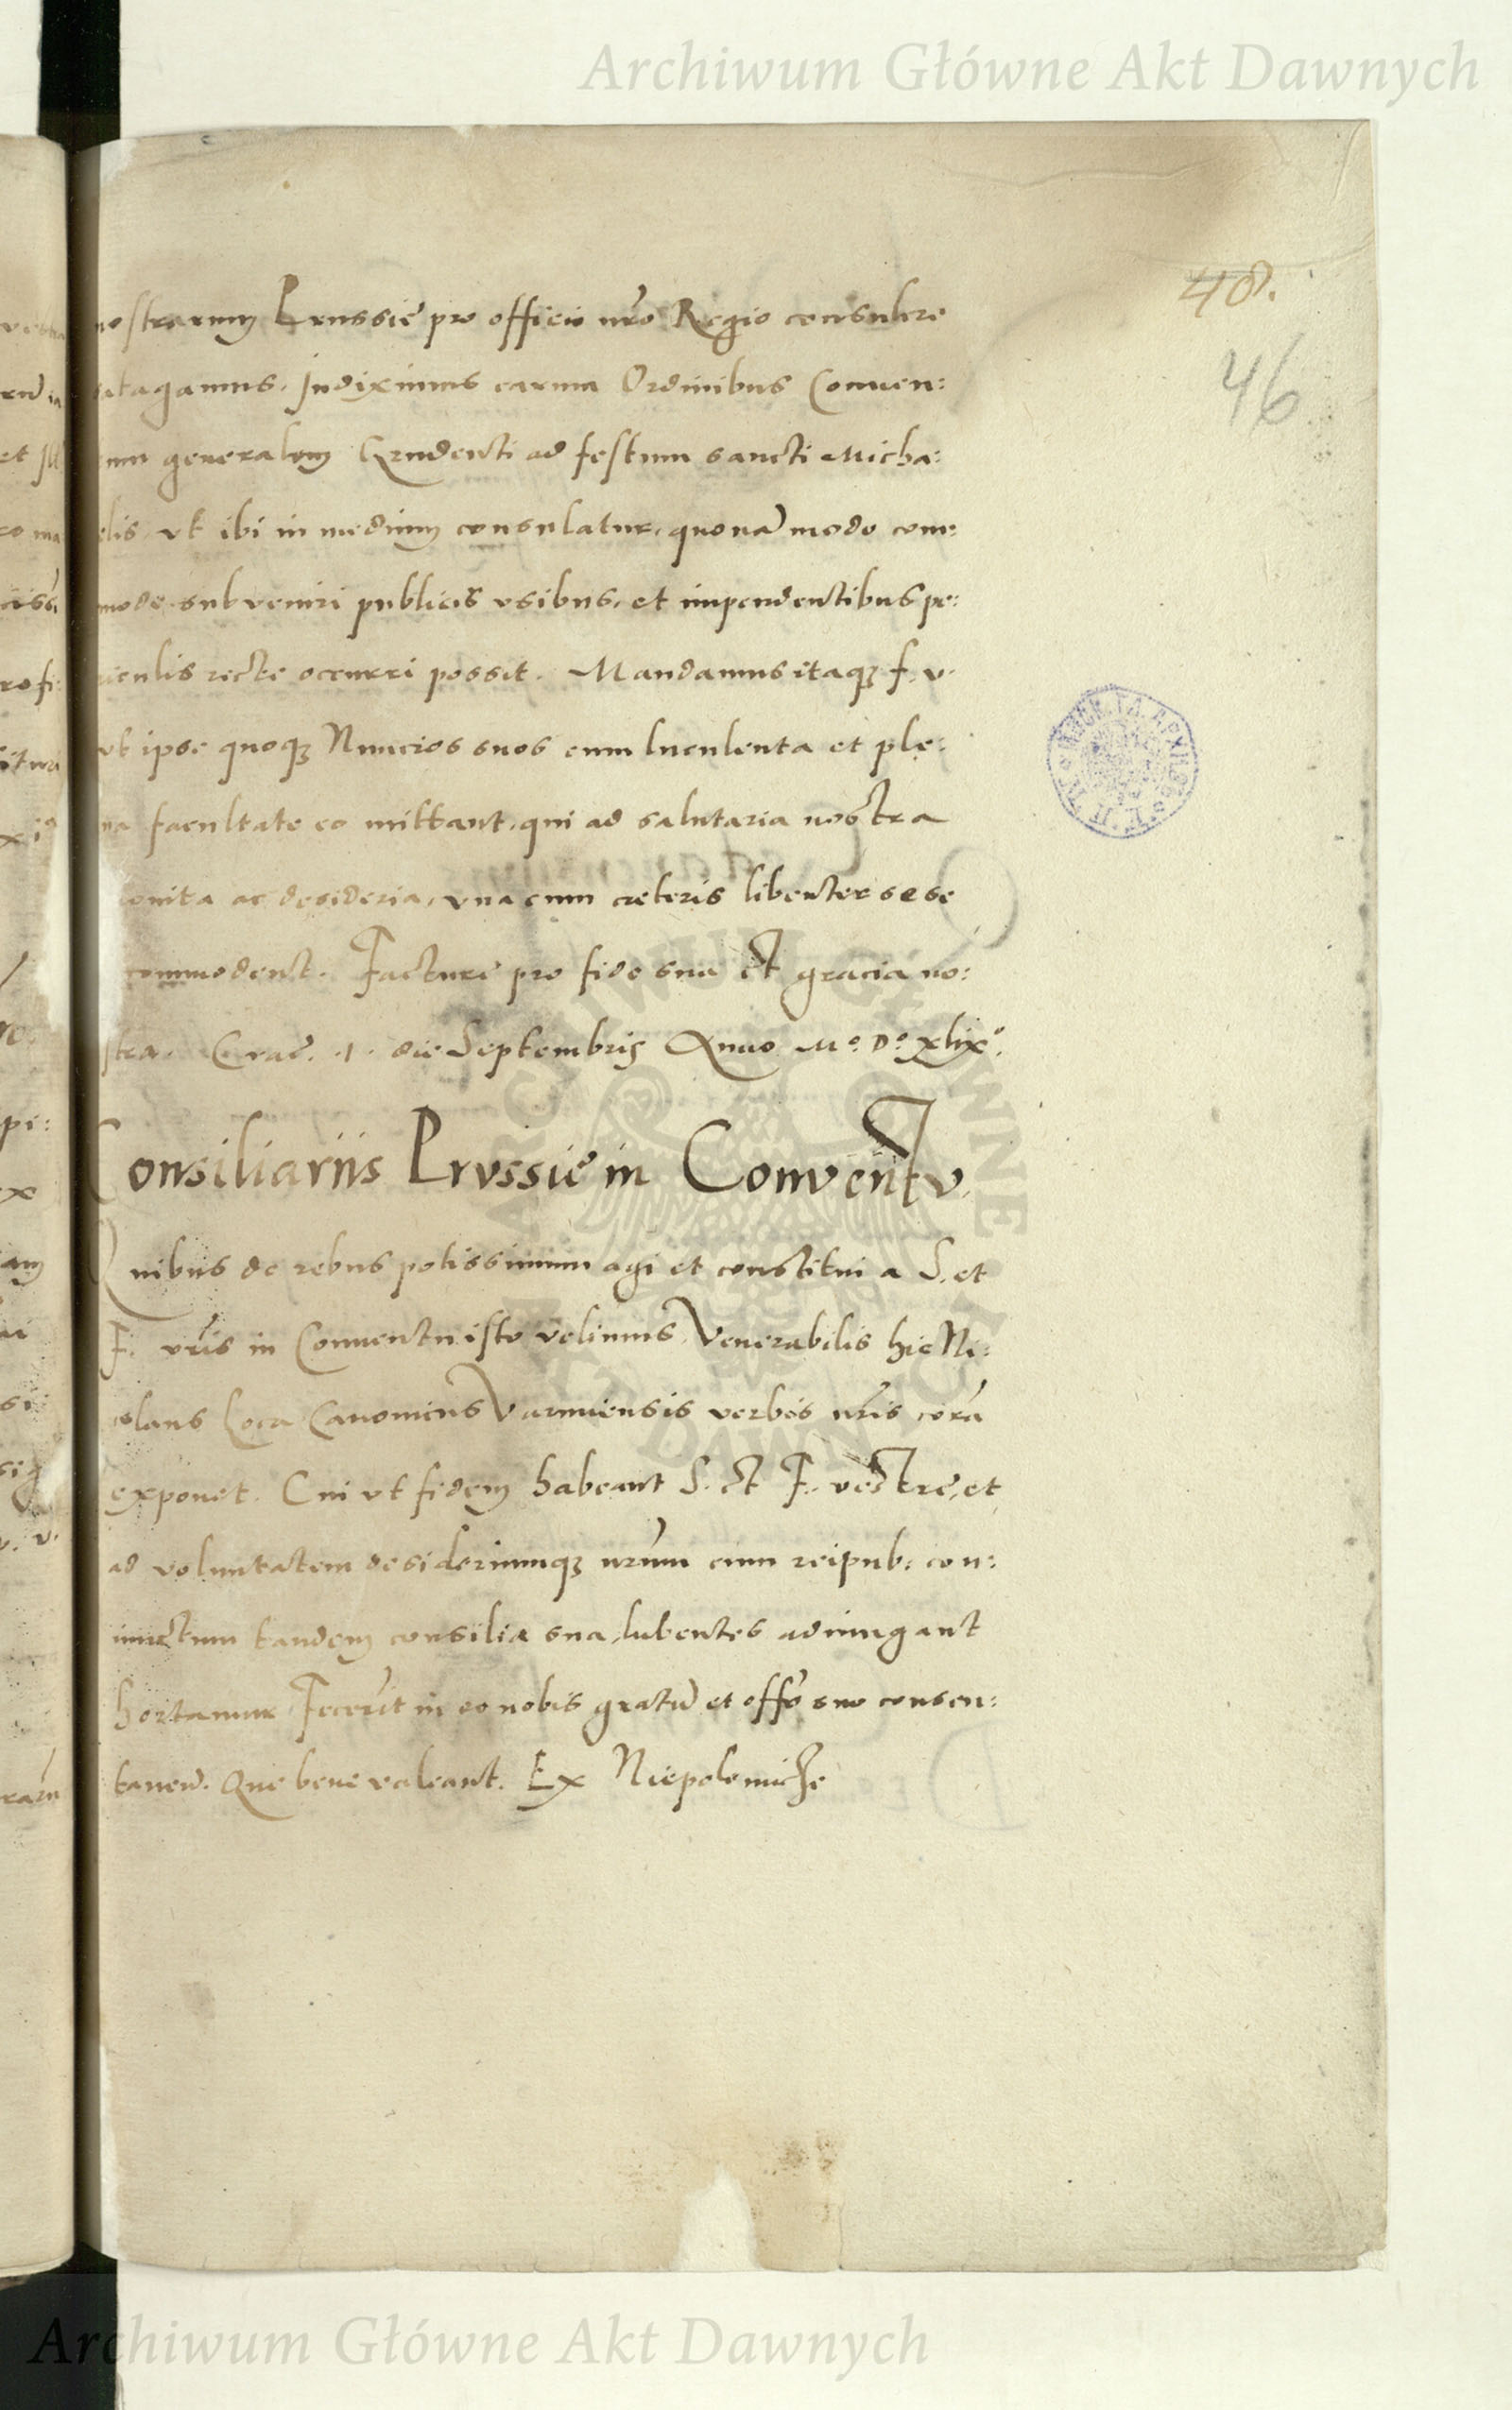 Archiwum Główne Akt Dawnych
48.
46
nostrarum Prussie pro officio nro Regio consulere
satagamus. Indiximus earum Ordinibus Conuen:
tum generalem Grudenti ad festum sancti Micha:
elis, vt ibi in medium consulatur, quonā modo com:
mode subveniri publicis vsibus, et impendentibus pe:
riculis recte occurri possit. Mandamus itaqꝫ f. v.
vt ipse quoqꝫ Nuncios suos cum luculenta et ple:
na facultate eo mittant, qui ad salutaria nostra
monita ac desideria, vna cum ceteris libenter sese
accommodent. Facture pro fide sua et gracia no:
stra. Crac. 1. die Septembris Anno Mº Dº xlixº.
Consiliariis Prussie in Conventv.
Quibus de rebus potissimum agi et constitui a S. et
F. vris in Conuentu isto velimus, Venerabilis hic Ni:
colaus Loca Canonicus Varmiensis verbis nris corā
exponet. Cui vt fidem habeant S. et F. vestre, et
ad voluntatem desideriumqꝫ nrum cum reipub: con:
iunctum tandem consilia sua, lubentes adiungant
hortamur. Fecerīt in eo nobis gratū et offō suo consen:
taneū. Que bene valeant. Ex Niepolomicze
Archiwum Główne Akt Dawnych